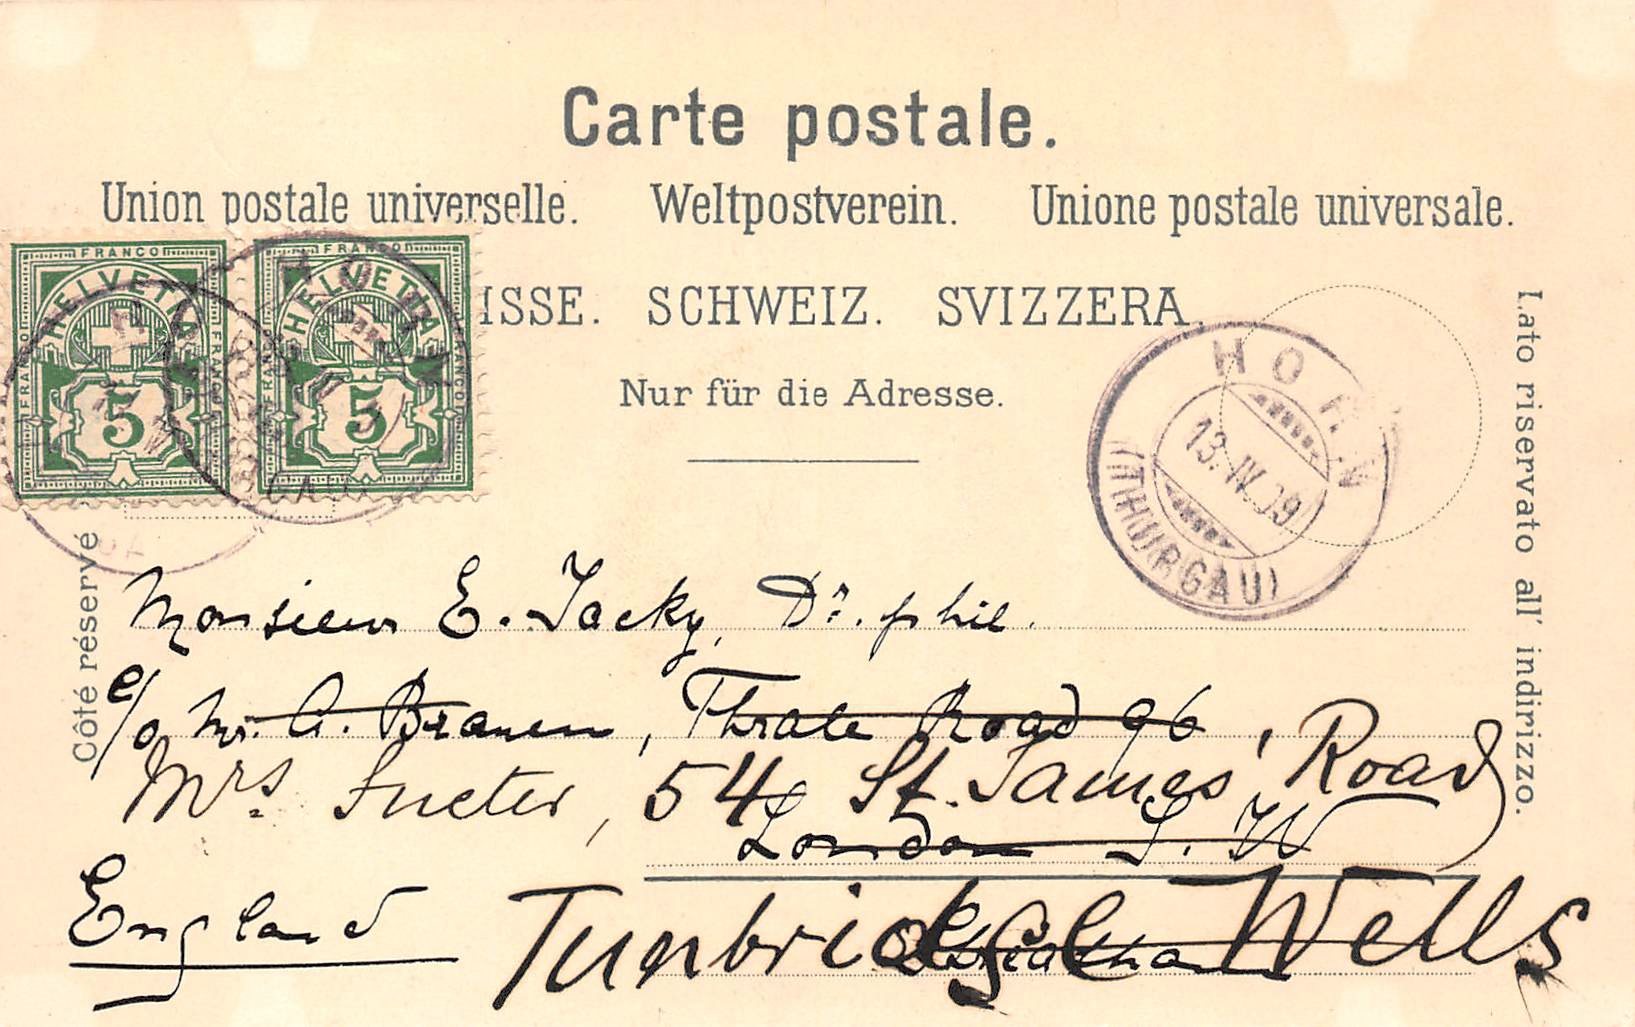 Carte postale.
Union postale universelle. Weltpostverein. Unione postale universale.
ISSE. SCHWEIZ. SVIZZERA.
Nur für die Adresse.
Côté réservé
Lato riservato all' indirizzo.
FRANCO
HELVETIA
FRANCO
FRANCO
5
FRANCO
HELVETIA
FRANCO
FRANCO
5
HORN
13. IV. 09
(THURGAU)
Monsieur E. Jacky, Dr. phil.
c/o Mr. A. Branen, Thrale Road 96,
Mrs. Sueter, 54 St. James' Road
London S. W
England
Tunbridge Wells
Streatham